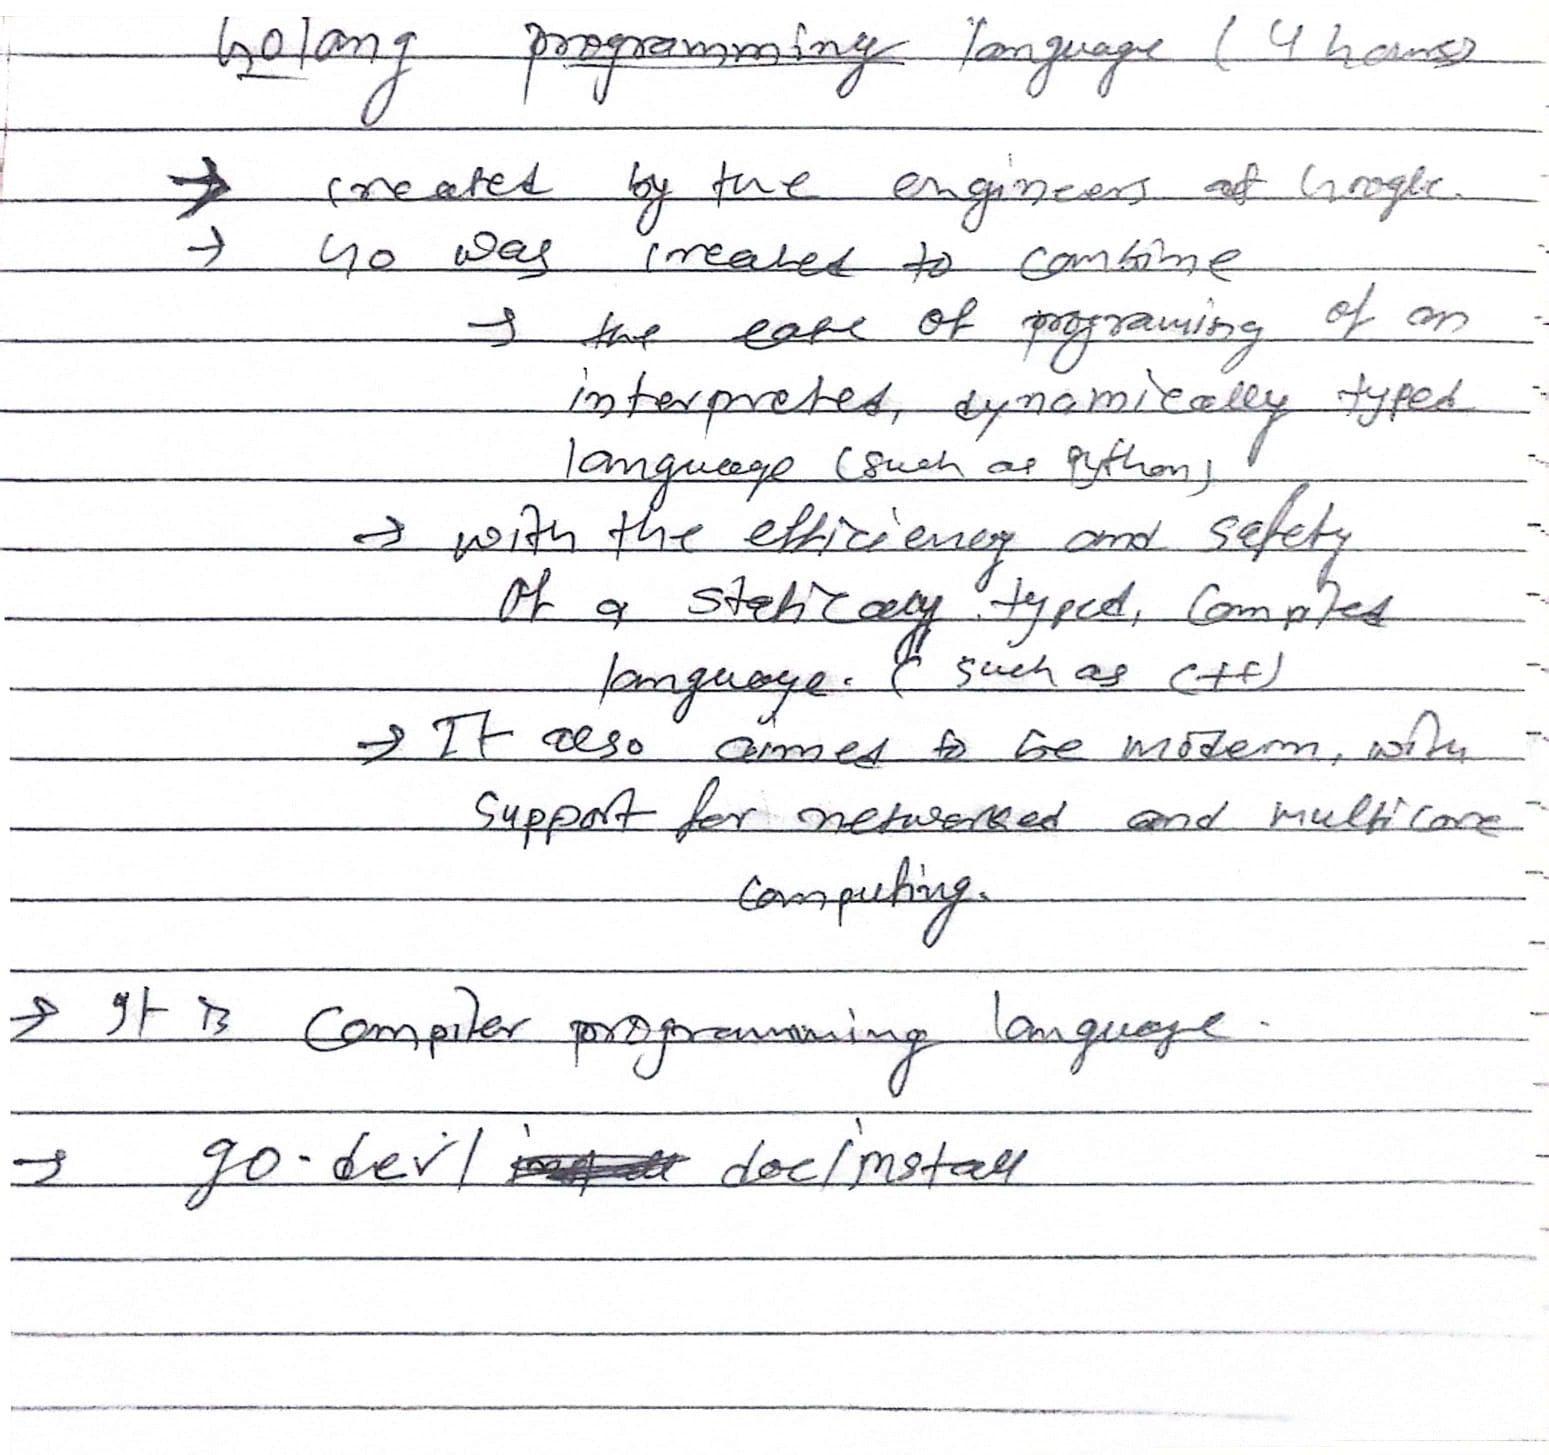 Golang programming language (4 hours)
→ created by the engineers at Google.
→ Go was created to combine
→ the ease of programing of an
interpreted, dynamically typed
language (such as Python)
→ with the efficiency and safety
of a statically typed, compiled
language. (such as C++)
→ It also aimed to be modern, with
support for networked and multicore
computing.
→ It is compiler programming language.
→ go.dev/ doc/install